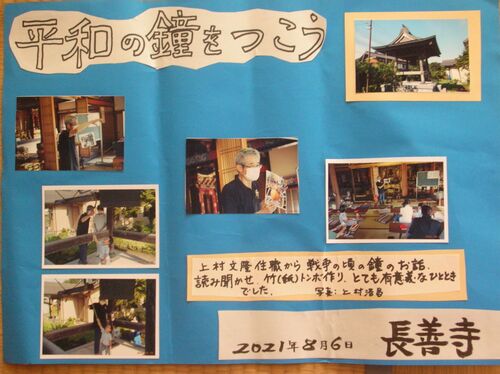 平和の鐘をつこう
上村文隆住職から戦争の頃の鐘のお話、
読み聞かせ、竹(紙)トンボ作り、とても有意義なひととき
でした。 写真:上村浩昌
2021年8月6日
長善寺